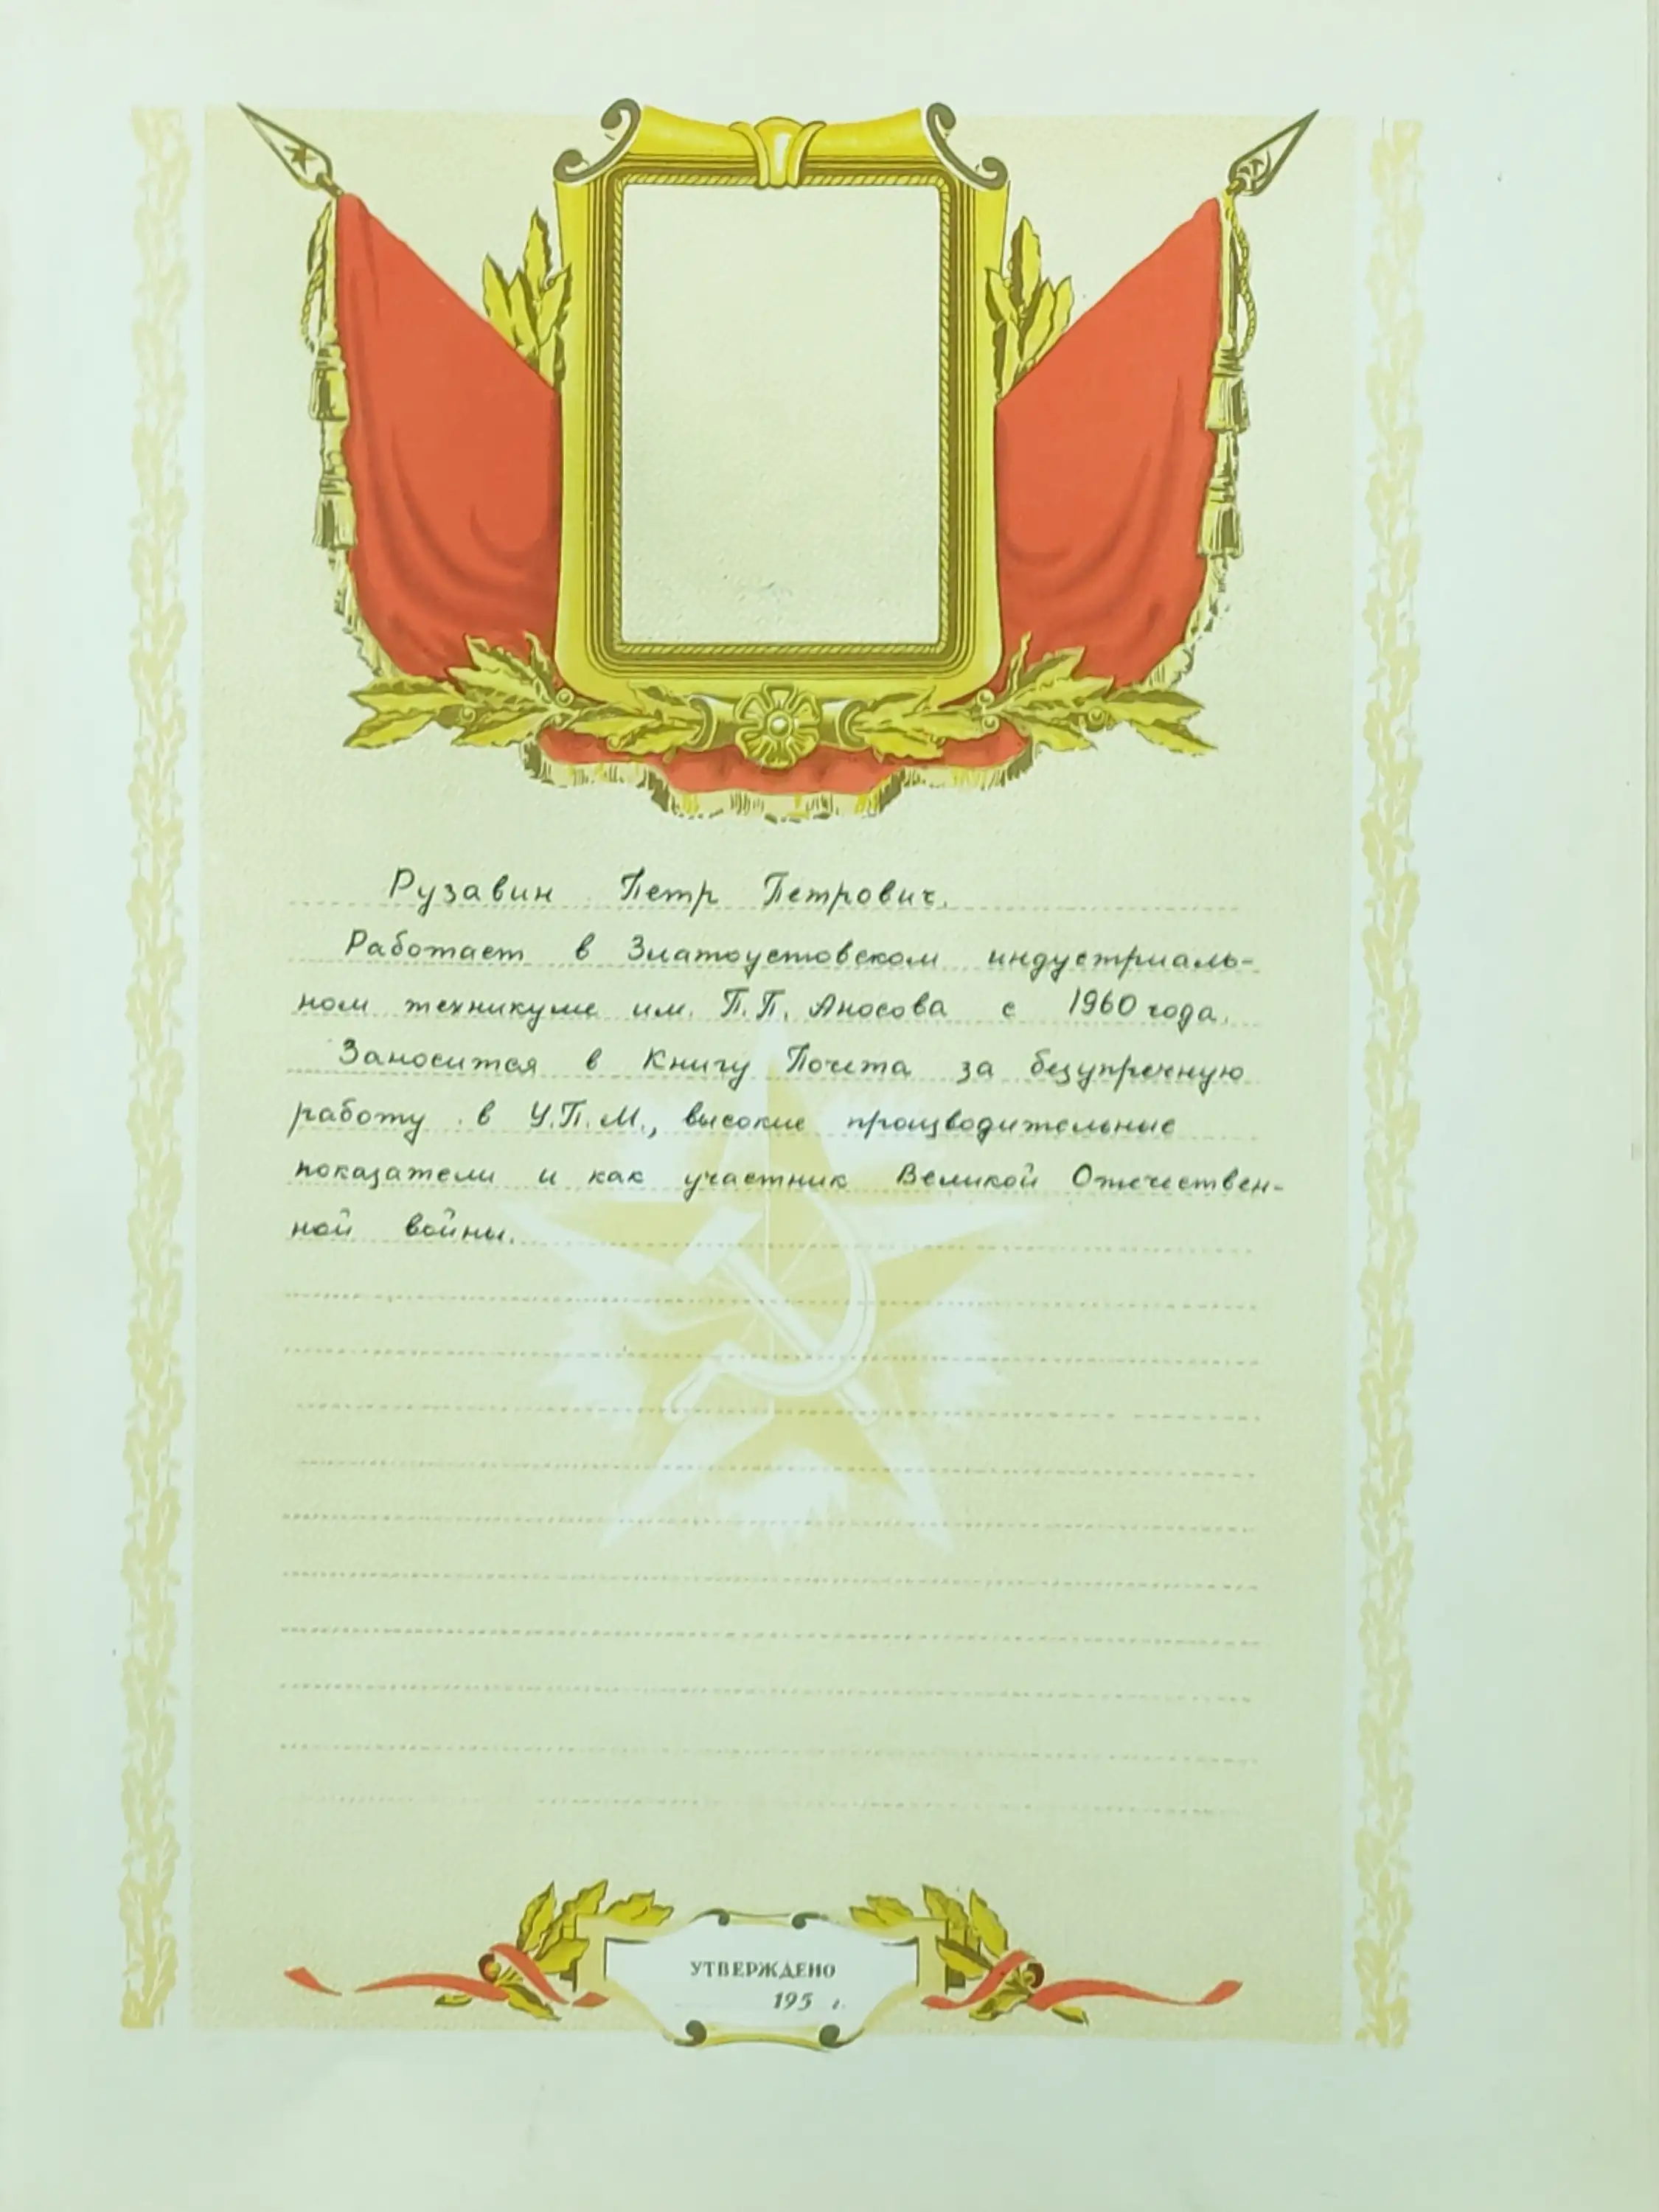 Рузавин Петр Петрович.
Работает в Златоустовском индустриаль-
ном техникуме им. П.П. Аносова с 1960 года.
Заносится в Книгу Почета за безупречную
работу в У.П.М., высокие производительные
показатели и как участник Великой Отечествен-
ной войны.
УТВЕРЖДЕНО
195 г.